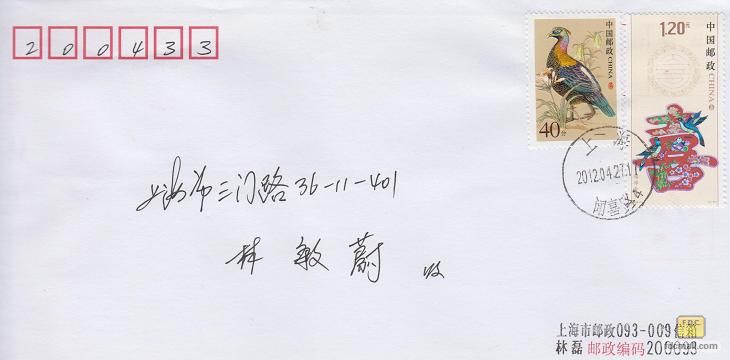 200433
中国邮政 CHINA
40分
1.20元
中国邮政 CHINA
上海
2012.04.27.11
上海市三门路36-11-401
林敏蔚 收
上海市邮政093-009信箱
林磊 邮政编码200093